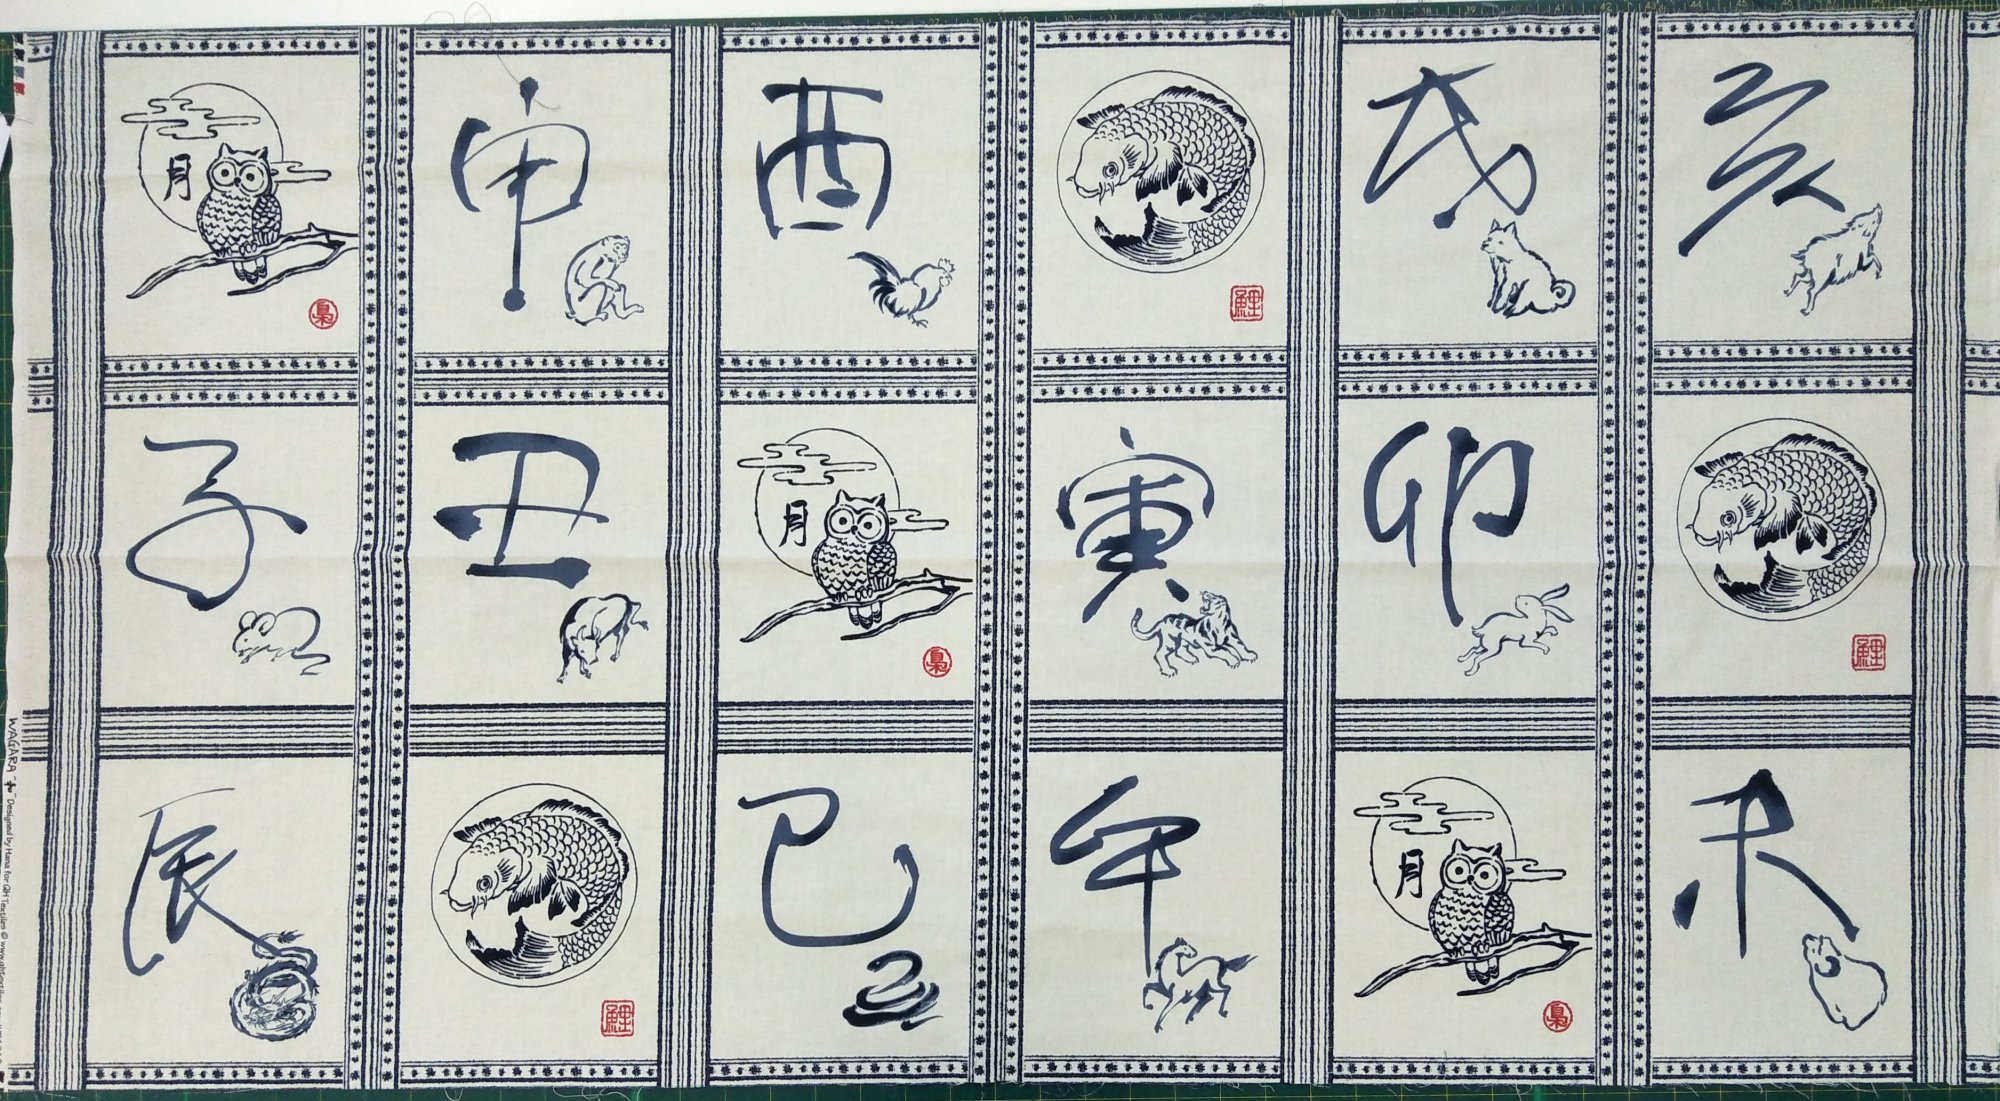 月
梟
申
酉
鯉
戌
亥
子
丑
月
梟
寅
卯
鯉
辰
鯉
巳
午
月
梟
未
WAGARA "和" Designed by Hana for QH Textiles ©